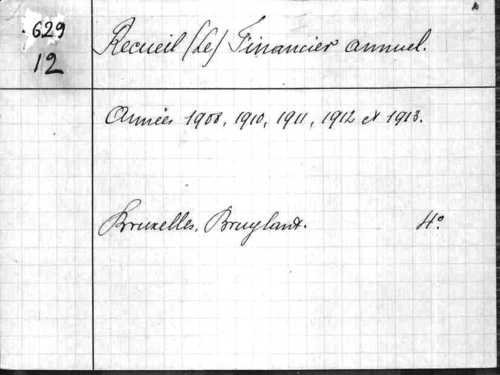 629
12
Recueil (Le) Financier annuel.
Années 1908, 1910, 1911, 1912 et 1913.
Bruxelles, Bruylant. 4º